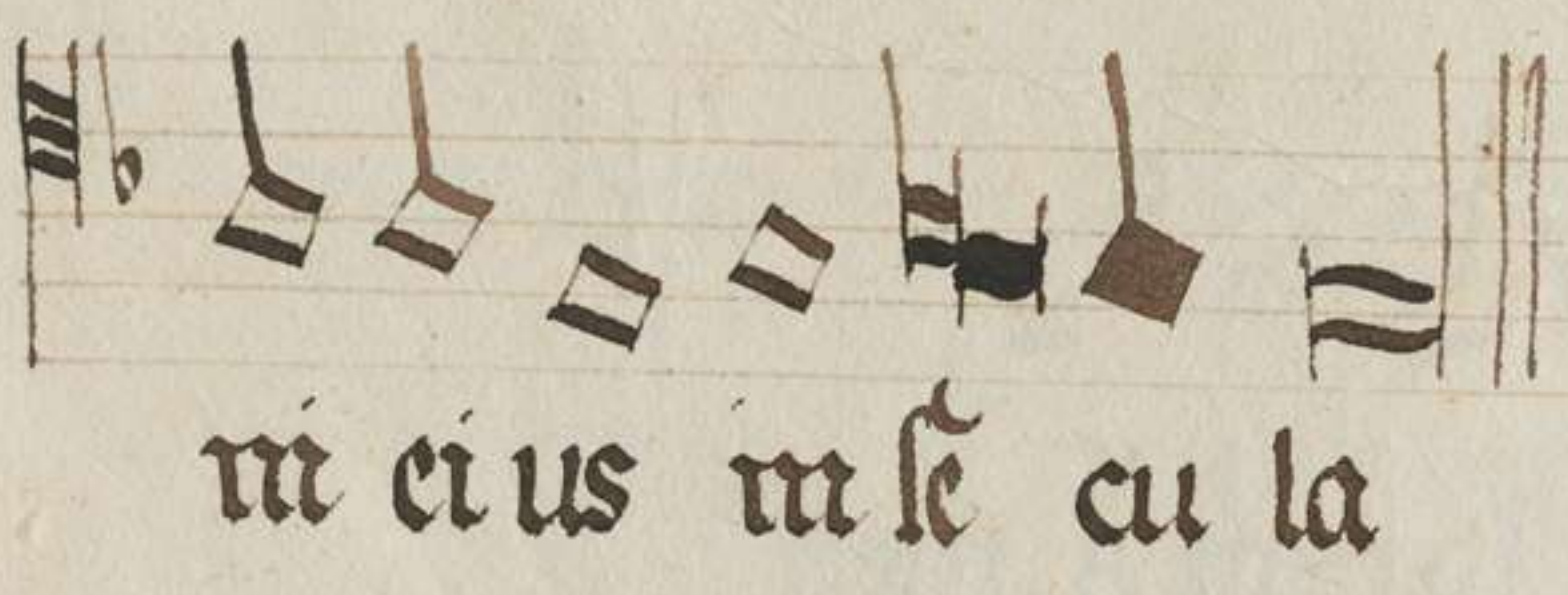 ni eius in se cu la